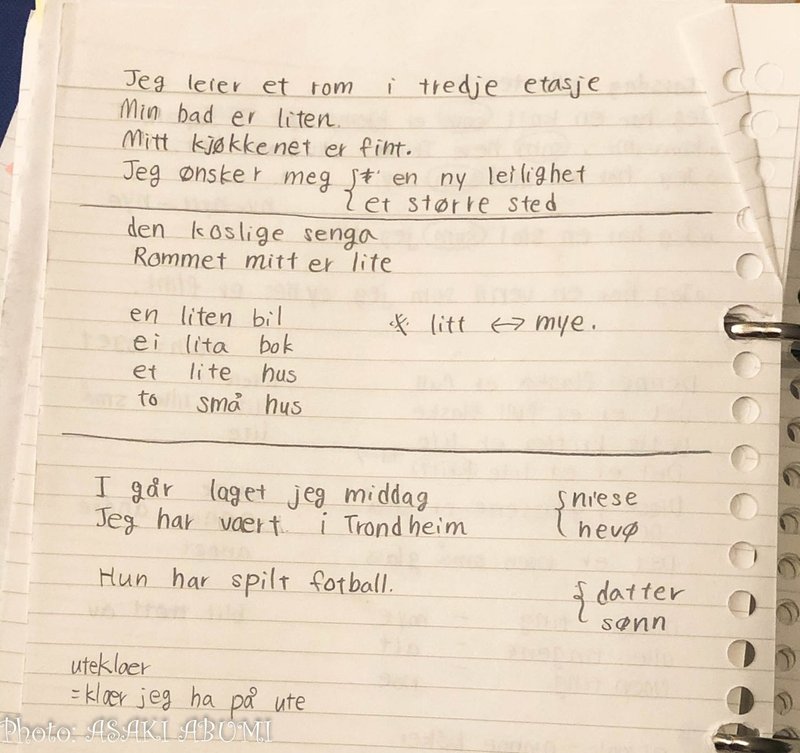 Jeg leier et rom i tredje etasje
Min bad er liten.
Mitt kjøkkenet er fint.
Jeg ønsker meg { en ny leilighet
{ et større sted
den koslige senga
Rommet mitt er lite
en liten bil * litt ↔ mye.
ei lita bok
et lite hus
to små hus
I går laget jeg middag { niese
Jeg har vært i Trondheim { nevø
Hun har spilt fotball. { datter
{ sønn
uteklær
=klær jeg ha på ute
Photo: ASAKI ABUMI